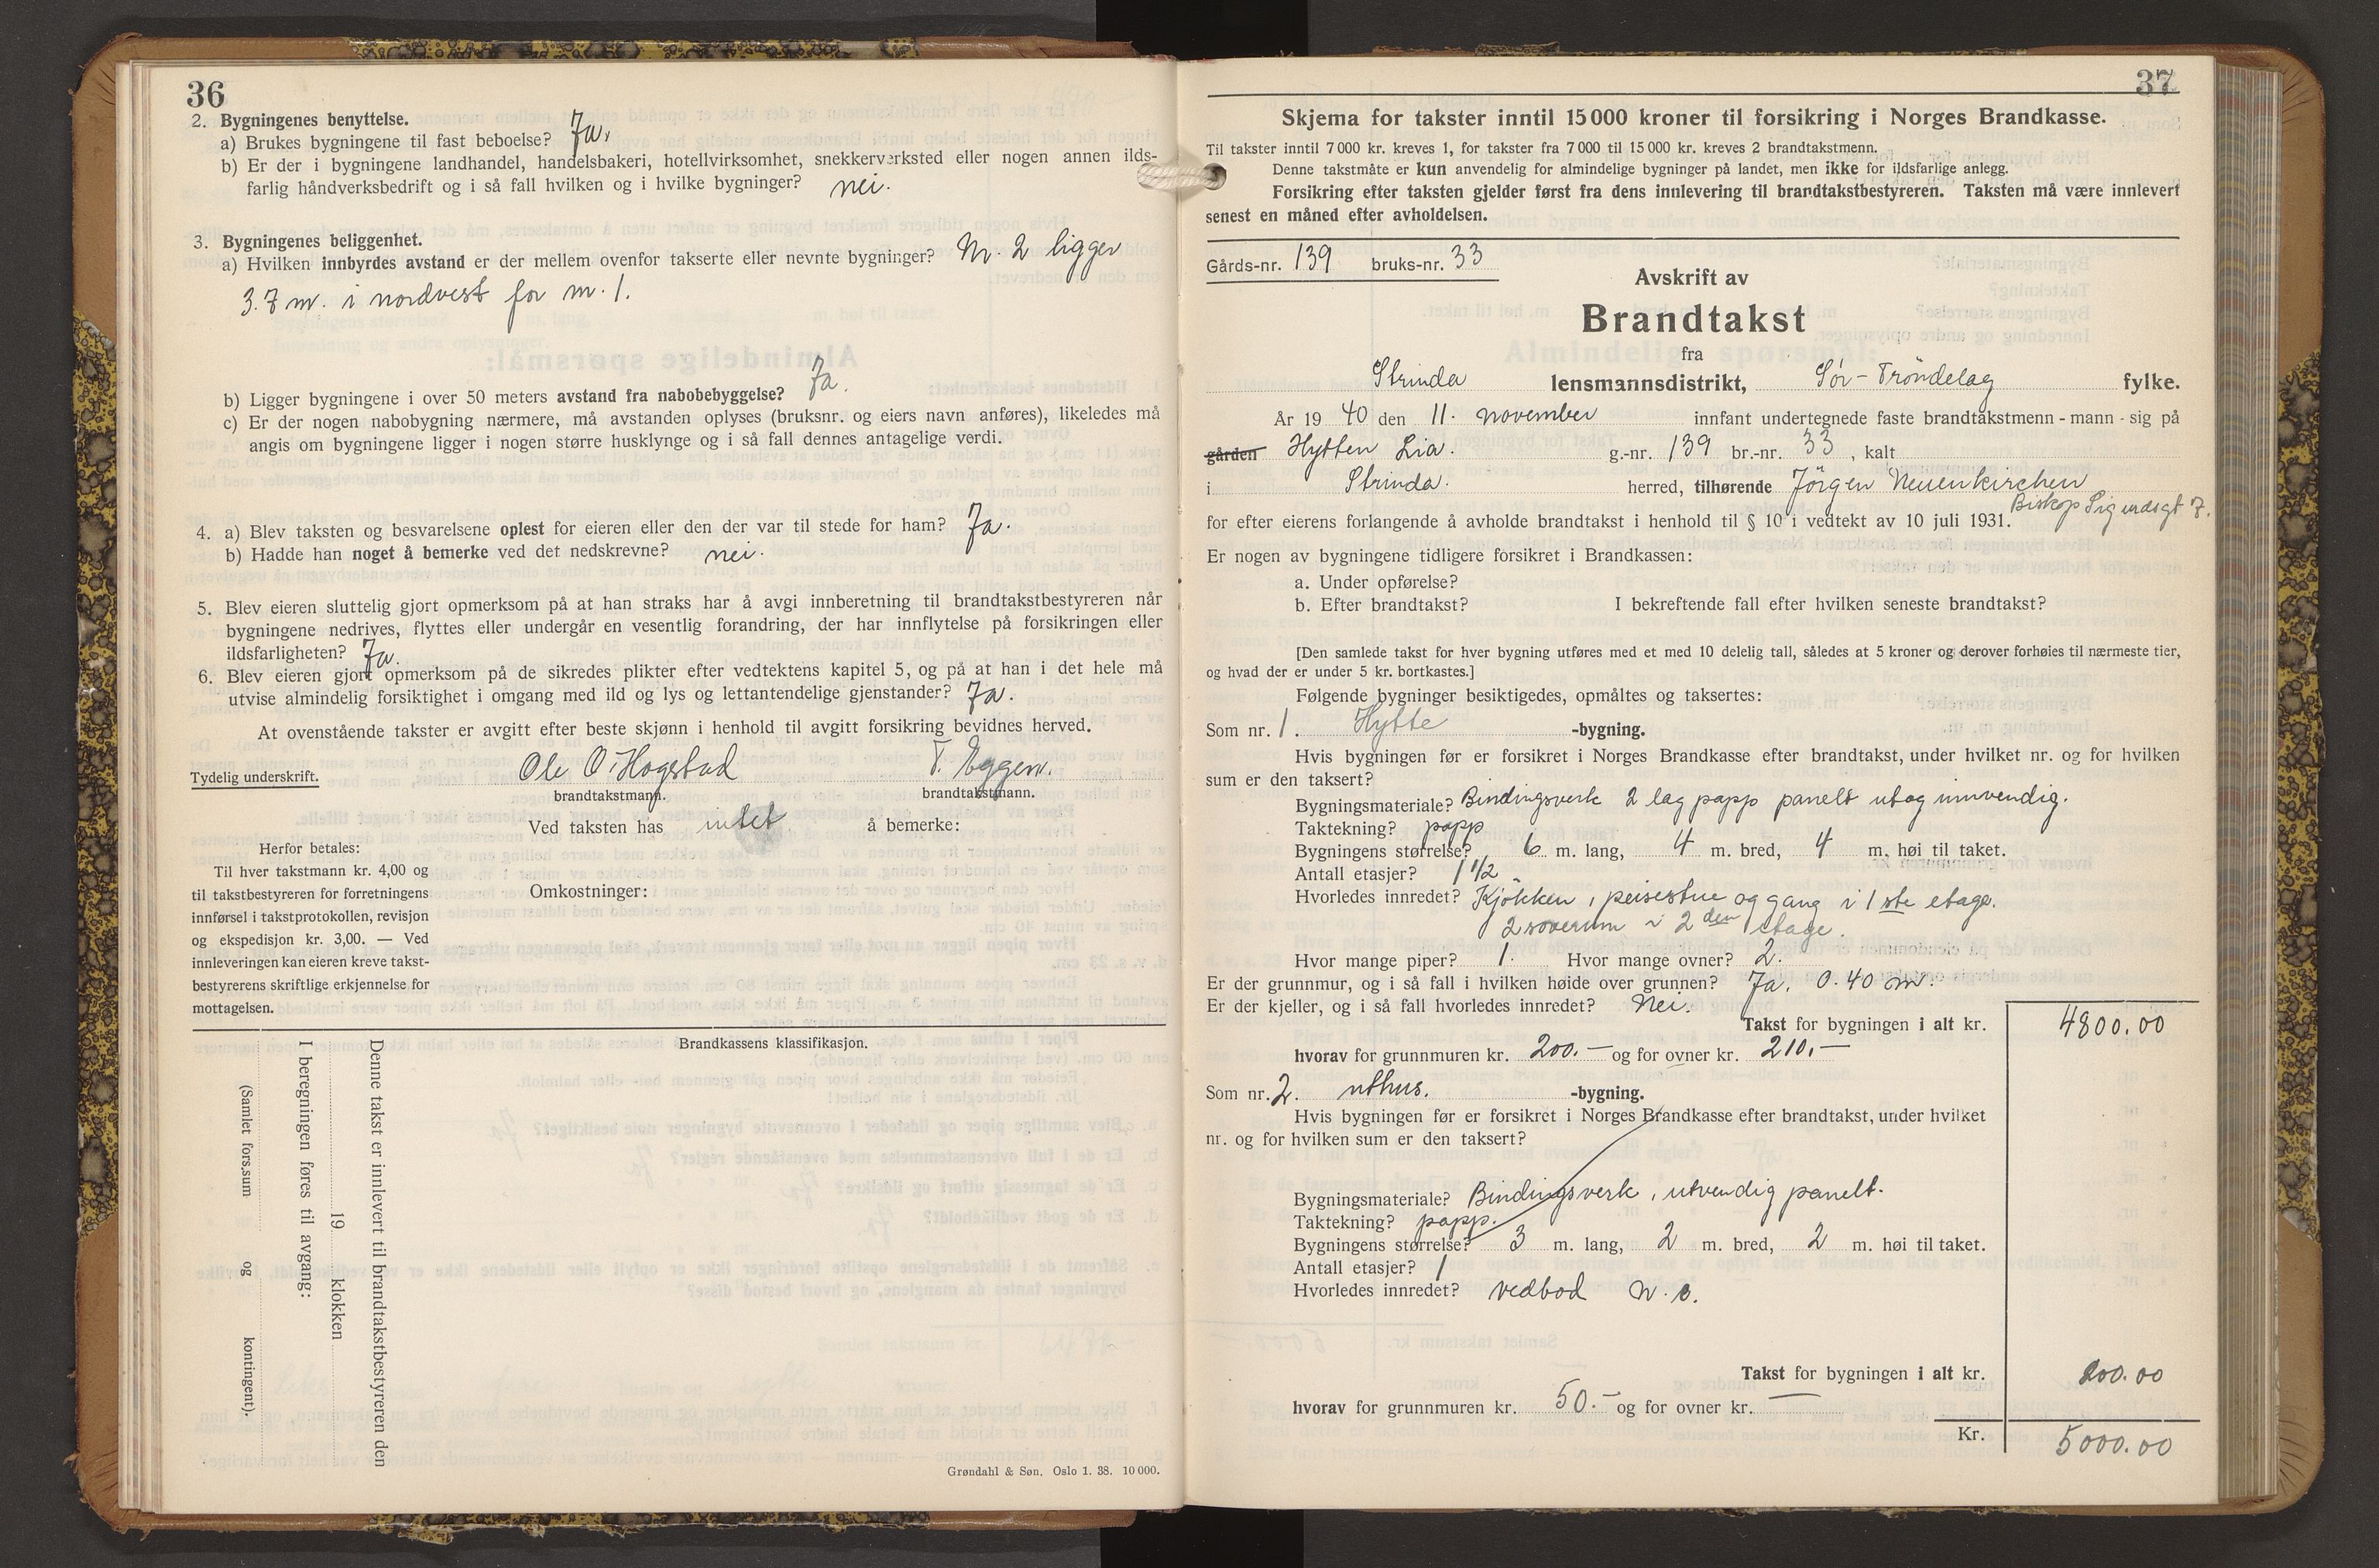 36
2. Bygningenes benyttelse.
a) Brukes bygningene til fast beboelse? Ja.
b) Er der i bygningene landhandel, handelsbakeri, hotellvirksomhet, snekkerverksted eller nogen annen ilds-
farlig håndverksbedrift og i så fall hvilken og i hvilke bygninger? nei.
3. Bygningenes beliggenhet.
a) Hvilken innbyrdes avstand er der mellem ovenfor takserte eller nevnte bygninger? Nr. 2 ligger
3.7 m. i nordvest for nr. 1.
b) Ligger bygningene i over 50 meters avstand fra nabobebyggelse? Ja.
c) Er der nogen nabobygning nærmere, må avstanden oplyses (bruksnr. og eiers navn anføres), likeledes må
angis om bygningene ligger i nogen større husklynge og i så fall dennes antagelige verdi.
4. a) Blev taksten og besvarelsene oplest for eieren eller den der var til stede for ham? Ja.
b) Hadde han noget å bemerke ved det nedskrevne? nei.
5. Blev eieren sluttelig gjort opmerksom på at han straks har å avgi innberetning til brandtakstbestyreren når
bygningene nedrives, flyttes eller undergår en vesentlig forandring, der har innflytelse på forsikringen eller
ildsfarligheten? Ja.
6. Blev eieren gjort opmerksom på de sikredes plikter efter vedtektens kapitel 5, og på at han i det hele må
utvise almindelig forsiktighet i omgang med ild og lys og lettantendelige gjenstander? Ja.
At ovenstående takster er avgitt efter beste skjønn i henhold til avgitt forsikring bevidnes herved.
Tydelig underskrift. Ole O. Hogstad T. Eggen.
brandtakstmann. brandtakstmann.
Ved taksten has intet å bemerke:
Herfor betales:
Til hver takstmann kr. 4,00 og
til takstbestyreren for forretningens
innførsel i takstprotokollen, revisjon
og ekspedisjon kr. 3,00. — Ved
innleveringen kan eieren kreve takst-
bestyrerens skriftlige erkjennelse for
mottagelsen.
Omkostninger:
Brandkassens klassifikasjon.
Denne takst er innlevert til brandtakstbestyreren den
19 klokken
I beregningen føres til avgang:
(Samlet fors.sum og kontingent).
Grøndahl & Søn. Oslo 1. 38. 10 000.
37
Skjema for takster inntil 15 000 kroner til forsikring i Norges Brandkasse.
Til takster inntil 7 000 kr. kreves 1, for takster fra 7 000 til 15 000 kr. kreves 2 brandtakstmenn.
Denne takstmåte er kun anvendelig for almindelige bygninger på landet, men ikke for ildsfarlige anlegg.
Forsikring efter taksten gjelder først fra dens innlevering til brandtakstbestyreren. Taksten må være innlevert
senest en måned efter avholdelsen.
Gårds-nr. 139 bruks-nr. 33
Avskrift av
Brandtakst
fra
Strinda lensmannsdistrikt, Sør-Trøndelag fylke.
År 1940 den 11. november innfant undertegnede faste brandtakstmenn - mann - sig på
gården Hytten Lia. g.-nr. 139 br.-nr. 33, kalt
i Strinda. herred, tilhørende Jörgen Neuenkirchen
Biskop Sigurdsgt 7.
for efter eierens forlangende å avholde brandtakst i henhold til § 10 i vedtekt av 10 juli 1931.
Er nogen av bygningene tidligere forsikret i Brandkassen:
a. Under opførelse?
b. Efter brandtakst? I bekreftende fall efter hvilken seneste brandtakst?
[Den samlede takst for hver bygning utføres med et med 10 delelig tall, således at 5 kroner og derover forhøies til nærmeste tier,
og hvad der er under 5 kr. bortkastes.]
Følgende bygninger besiktigedes, opmåltes og taksertes:
Som nr. 1. Hytte -bygning.
Hvis bygningen før er forsikret i Norges Brandkasse efter brandtakst, under hvilket nr. og for hvilken
sum er den taksert?
Bygningsmateriale? Bindingsverk 2 lag papp panelt ut og innvendig.
Taktekning? papp
Bygningens størrelse? 6 m. lang, 4 m. bred, 4 m. høi til taket.
Antall etasjer? 1 1/2
Hvorledes innredet? Kjökken, peisestue og gang i 1ste etage.
2 soverum i 2den etage.
Hvor mange piper? 1. Hvor mange ovner? 2.
Er der grunnmur, og i så fall i hvilken høide over grunnen? Ja. 0.40 m.
Er der kjeller, og i så fall hvorledes innredet? Nei.
Takst for bygningen i alt kr. 4800.00
hvorav for grunnmuren kr. 200.— og for ovner kr. 210.—
Som nr. 2. uthus. -bygning.
Hvis bygningen før er forsikret i Norges Brandkasse efter brandtakst, under hvilket
nr. og for hvilken sum er den taksert?
Bygningsmateriale? Bindingsverk, utvendig panelt.
Taktekning? papp.
Bygningens størrelse? 3 m. lang, 2 m. bred, 2 m. høi til taket.
Antall etasjer? 1
Hvorledes innredet? vedbod W.c.
Takst for bygningen i alt kr. 200.00
hvorav for grunnmuren kr. 50.— og for ovner kr. —
Kr. 5000.00